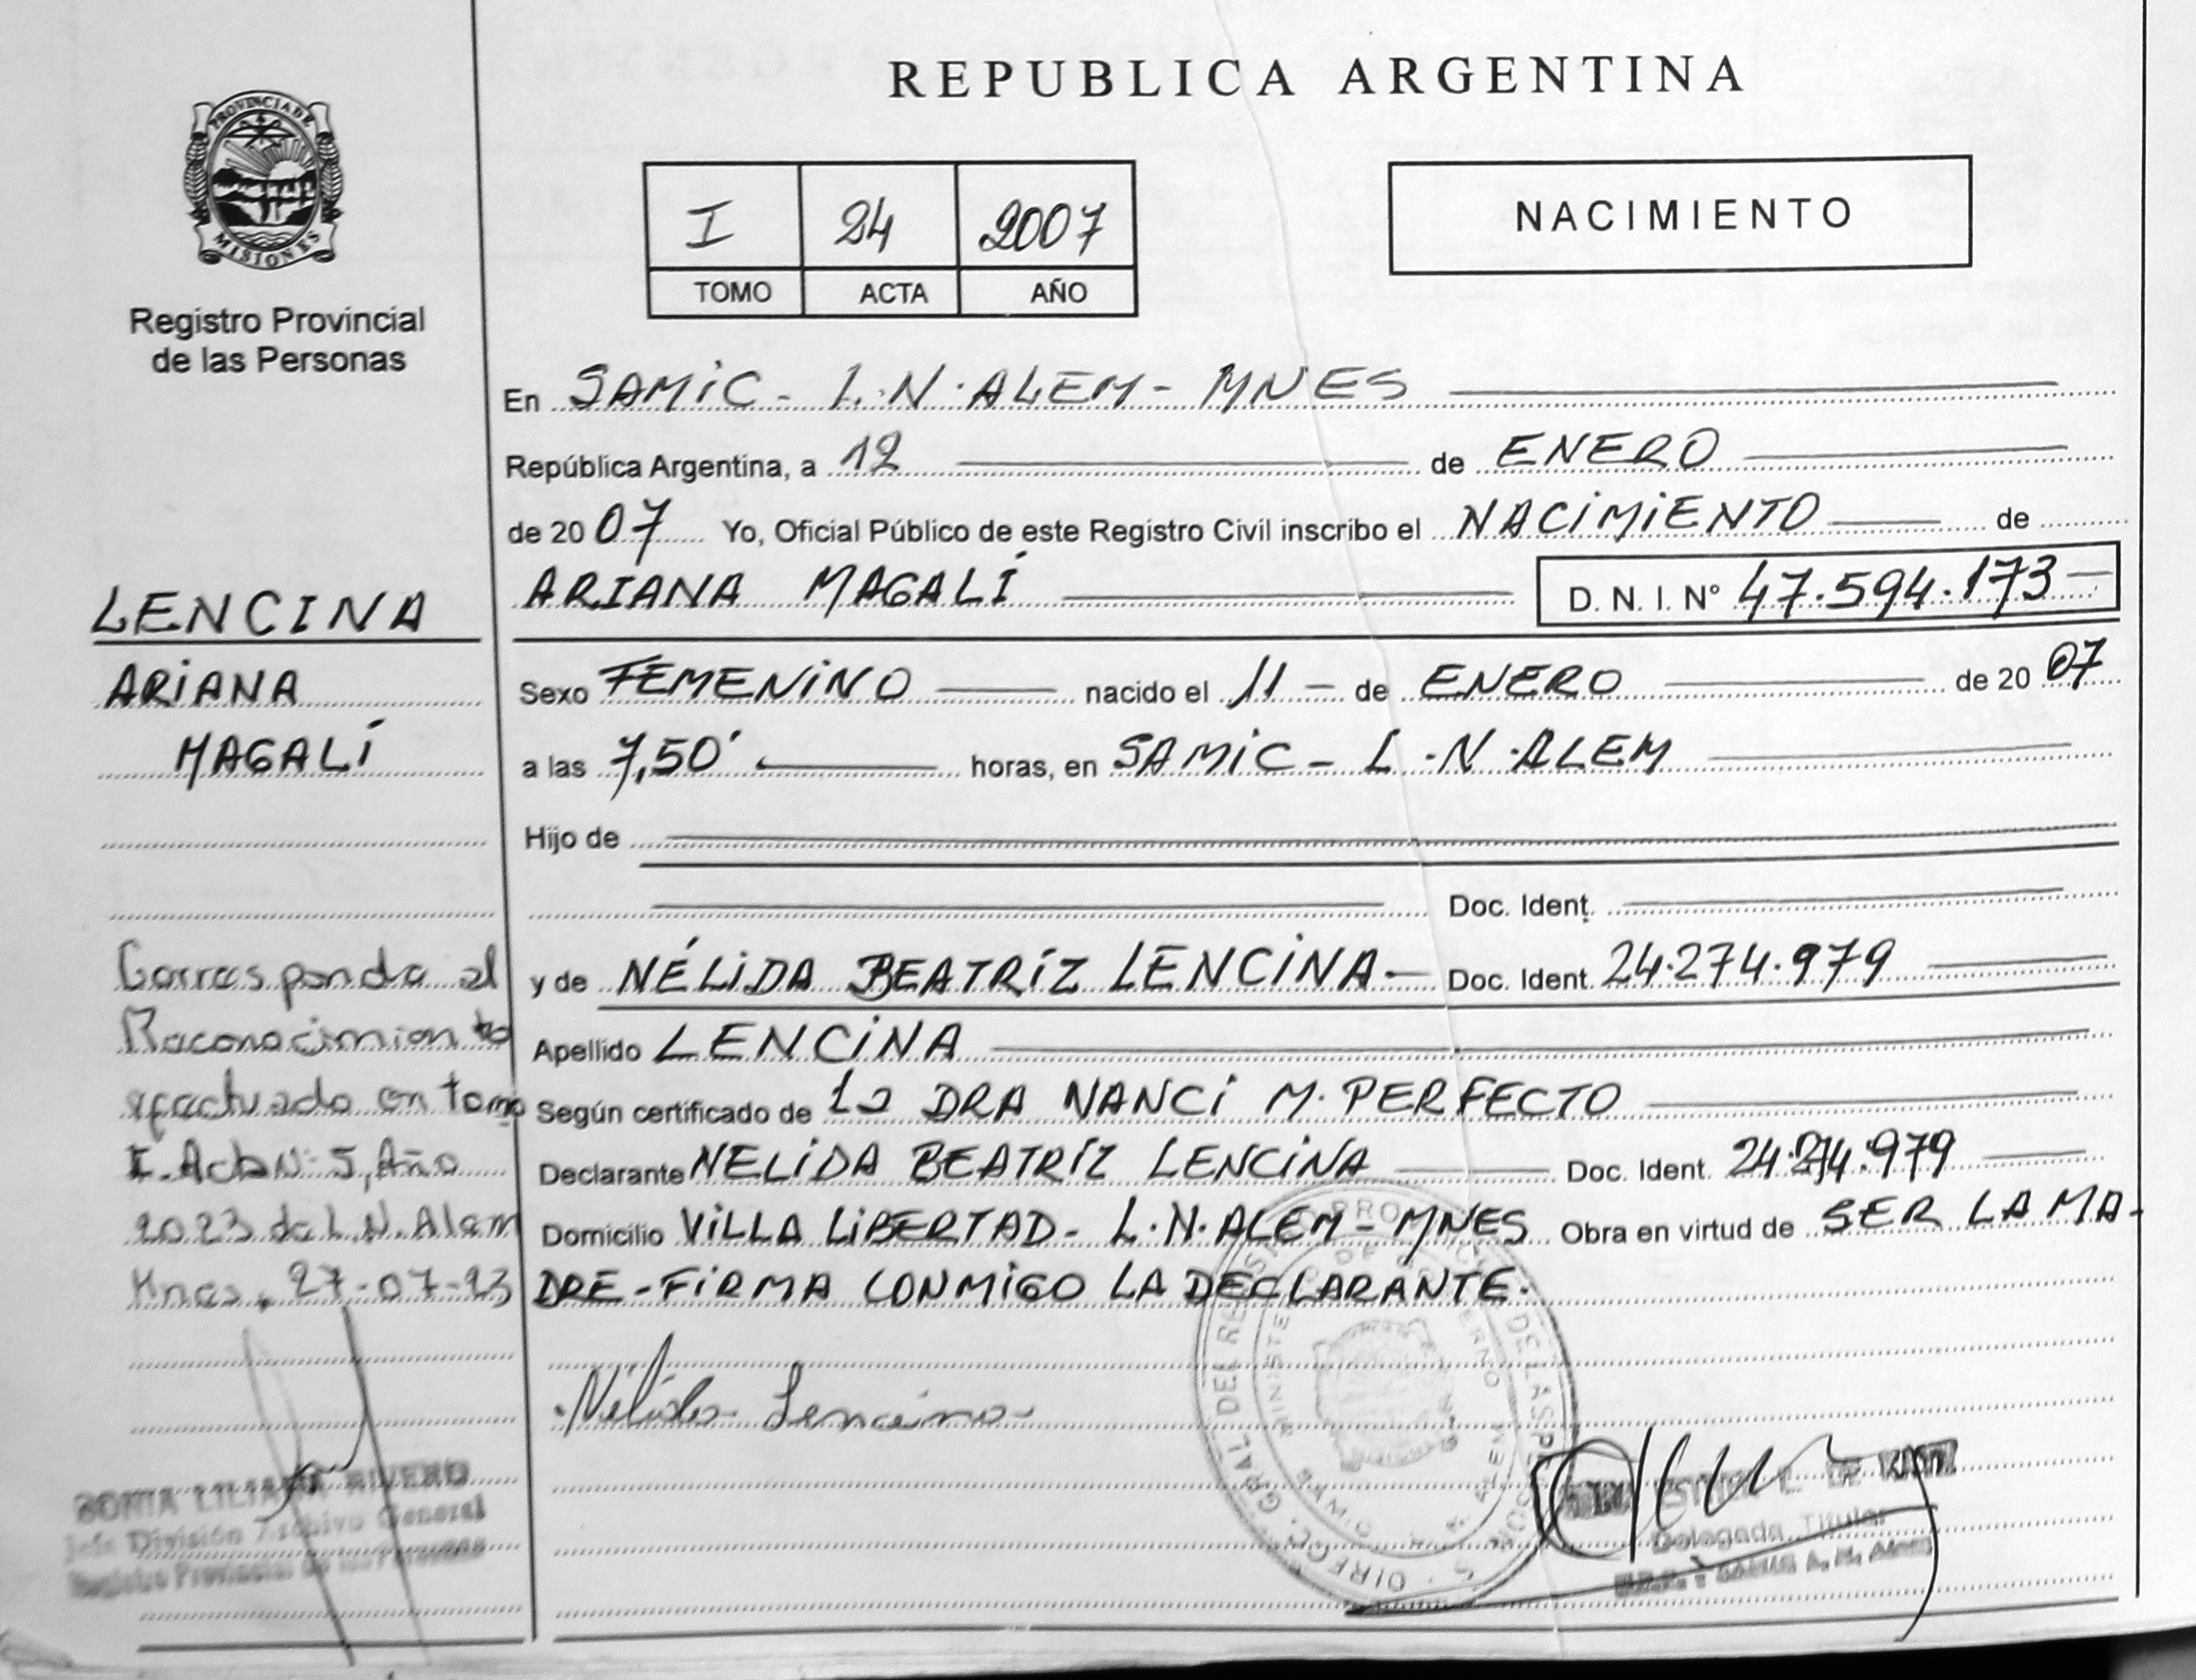 PROVINCIA DE
MISIONES
Registro Provincial
de las Personas
REPUBLICA ARGENTINA
I 24 2007
TOMO ACTA AÑO
NACIMIENTO
En SAMIC - L.N. ALEM - MNES
República Argentina, a 12 de ENERO
de 2007 Yo, Oficial Público de este Registro Civil inscribo el NACIMIENTO de
ARIANA MAGALÍ D. N. I. N° 47.594.173
Sexo FEMENINO nacido el 11 - de ENERO de 2007
a las 7,50' horas, en SAMIC - L.N. ALEM
Hijo de
Doc. Ident.
y de NÉLIDA BEATRÍZ LENCINA - Doc. Ident. 24.274.979
Apellido LENCINA
Según certificado de la DRA NANCI M. PERFECTO
Declarante NELIDA BEATRÍZ LENCINA Doc. Ident. 24.274.979
Domicilio VILLA LIBERTAD - L.N. ALEM - MNES Obra en virtud de SER LA MA-
DRE - FIRMA CONMIGO LA DECLARANTE.
Nélida Lencina
LENCINA
ARIANA
MAGALÍ
Corresponde al
Reconocimiento
efectuado en tomo
I. Acta N° 5, Año
2023 de L.N. Alem
Mnes, 27-07-23
SONIA LILIANA RIVERO
Jefe División Archivo General
Registro Provincial de las Personas
DIRECC. GRAL DEL
DE LAS
Delegada Titular